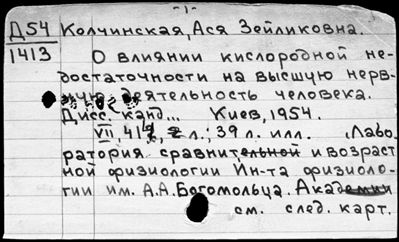 -1-
Д54 Колчинская, Ася Зейликовна.
1413 О влиянии кислородной не-
достаточности на высшую нерв-
ную деятельность человека.
Дисс. канд... Киев, 1954.
VII, 412, 2 л.; 39 л. илл. Лабо-
ратория сравнительной и возраст
ной физиологии Ин-та физиоло-
гии им. А.А.Богомольца. Академии
см. след. карт.